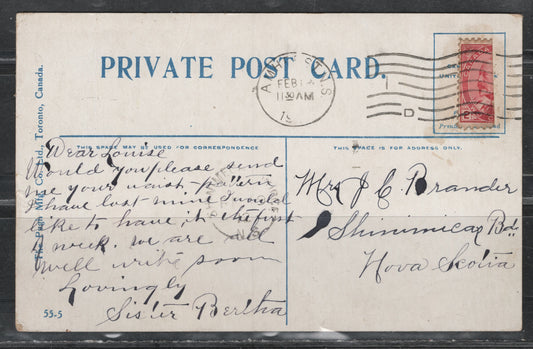 PRIVATE POST CARD.
AMHERST N.S
FEB
11 AM
19
D
THIS SPACE MAY BE USED FOR CORRESPONDENCE
THIS SPACE IS FOR ADDRESS ONLY.
Dear Louise
Would you please send
me your waist pattern
I have lost mine I would
like to have it the first
of week. we are all
well write soon
Lovingly
Sister Bertha
Mrs J C Brander
Shinimicas
Nova Scotia
The Pugh Mfg Co. Ltd., Toronto, Canada.
55-5